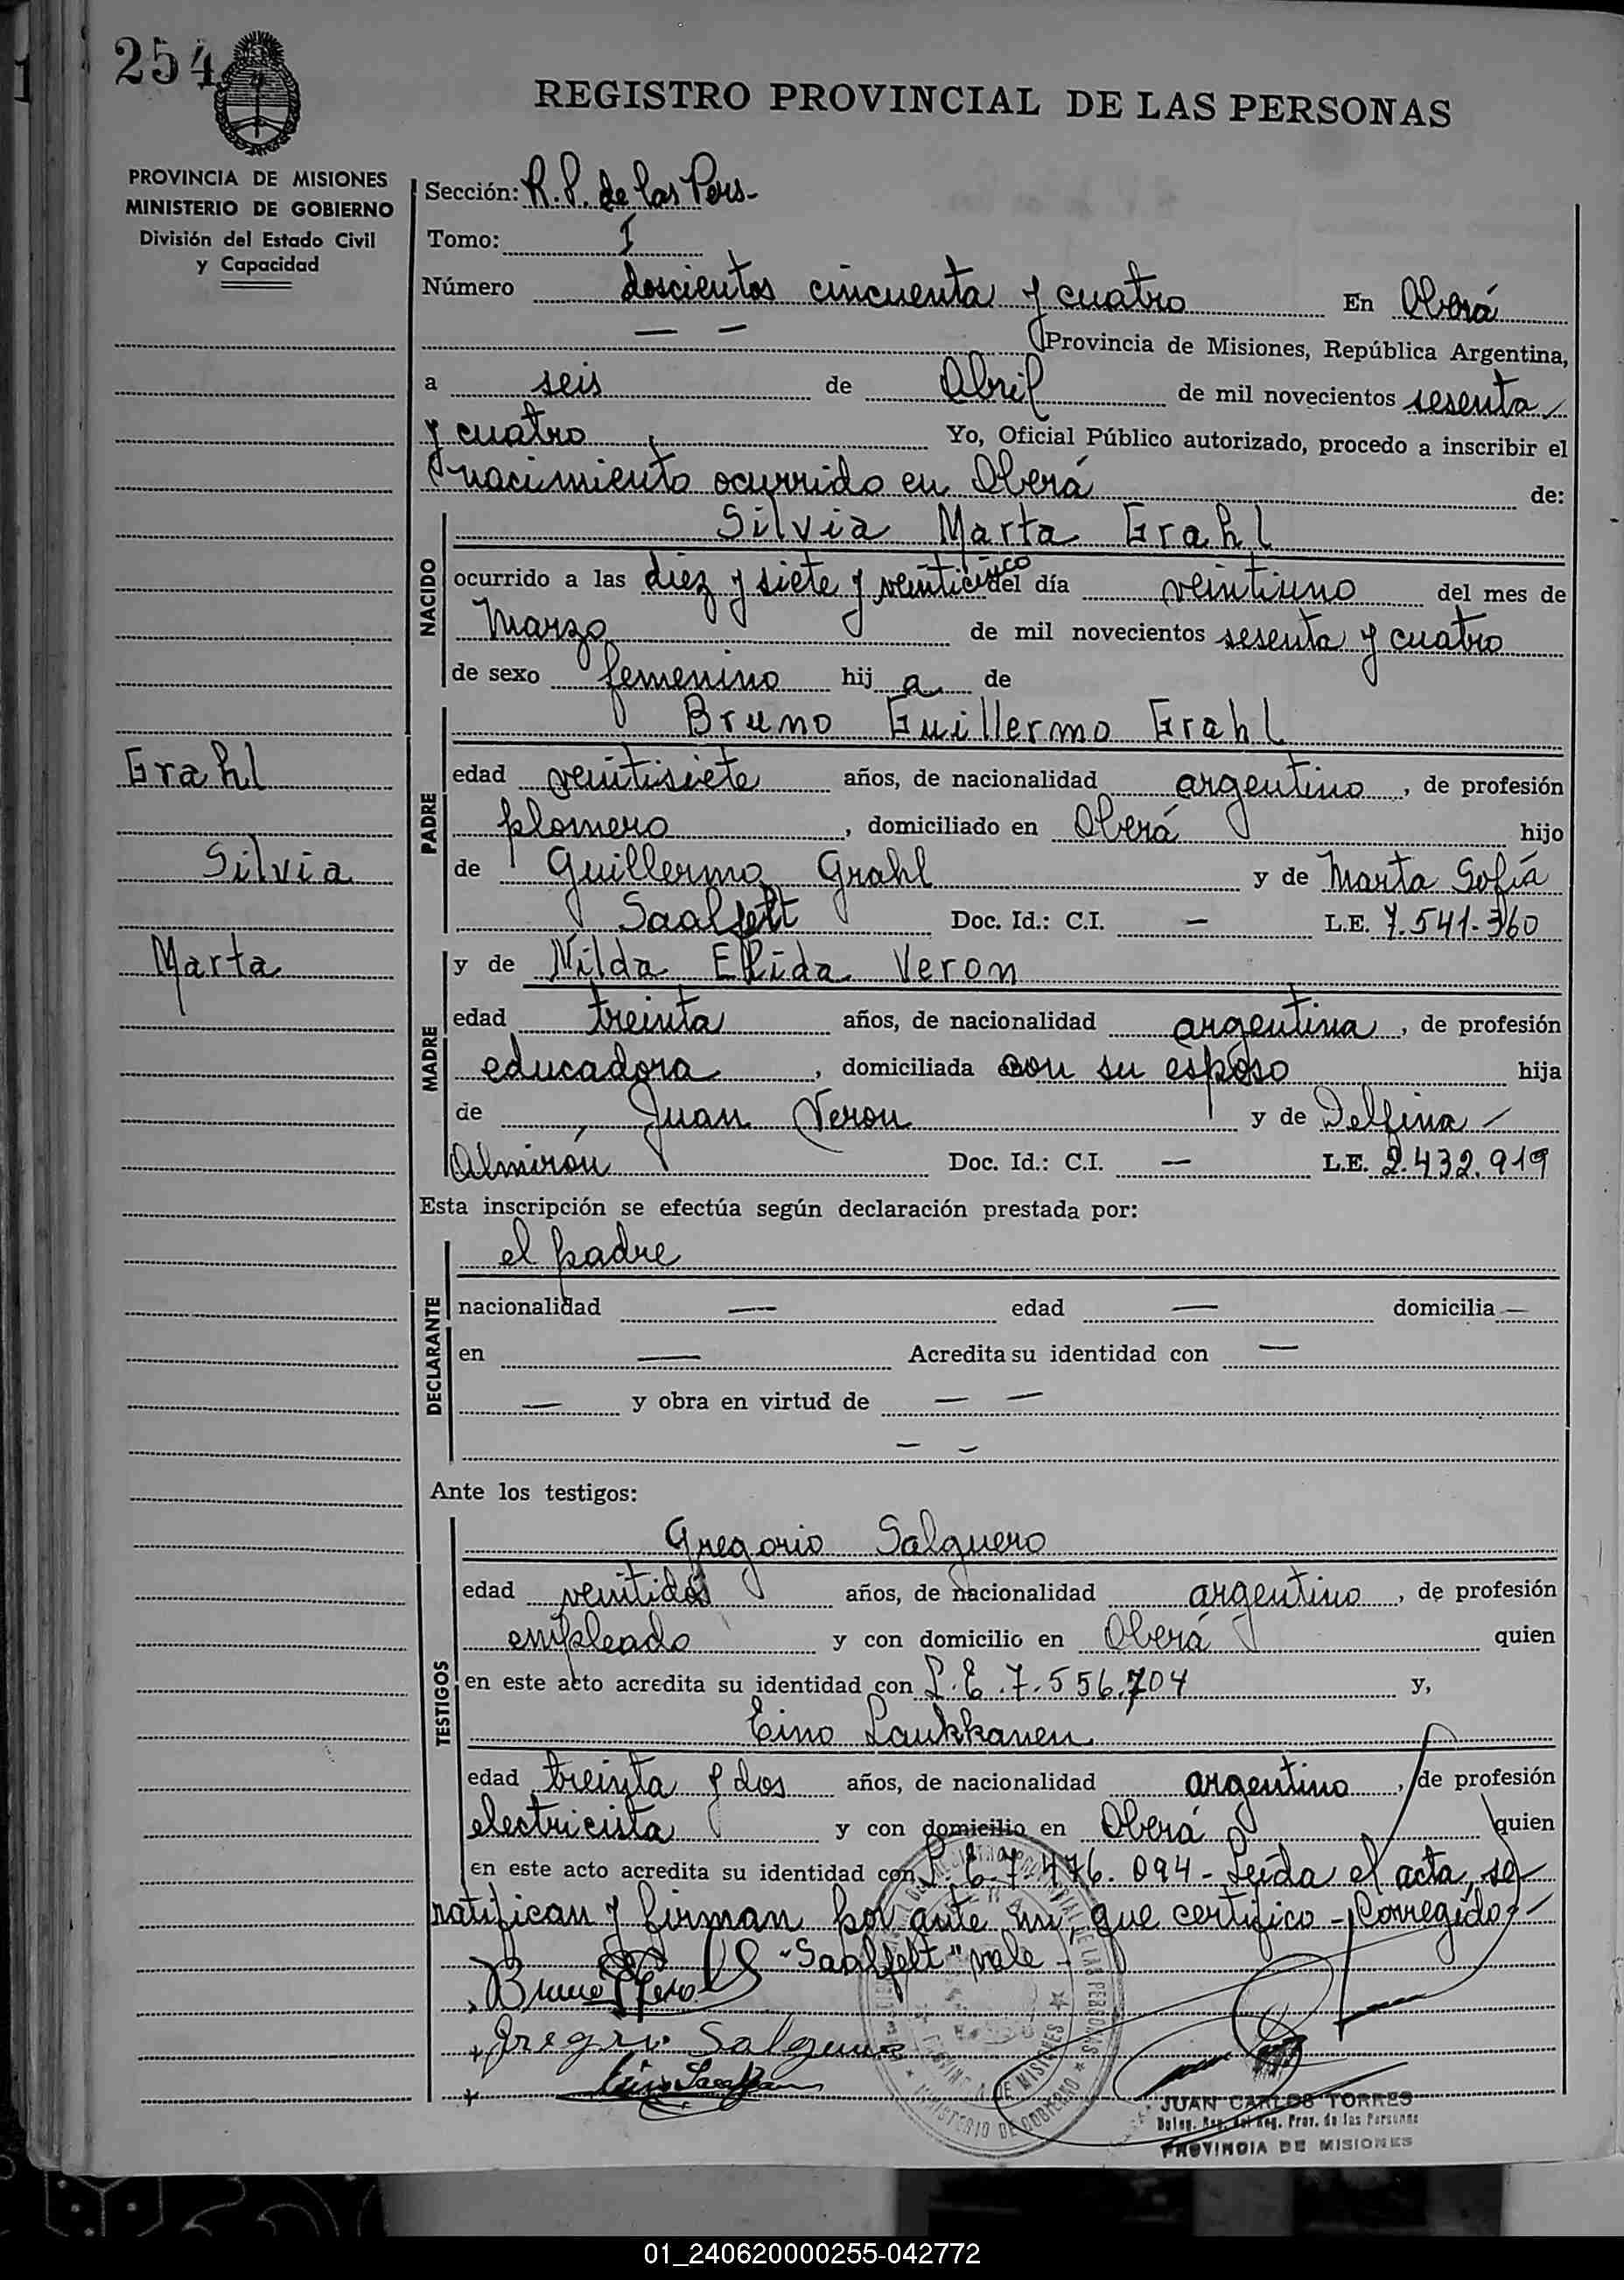 254
REGISTRO PROVINCIAL DE LAS PERSONAS
PROVINCIA DE MISIONES
MINISTERIO DE GOBIERNO
División del Estado Civil
y Capacidad
Sección: R.P. de las Pers-
Tomo: I
Número doscientos cincuenta y cuatro En Oberá
— — Provincia de Misiones, República Argentina,
a seis de Abril de mil novecientos sesenta
y cuatro, Yo, Oficial Público autorizado, procedo a inscribir el
nacimiento ocurrido en Oberá de:
NACIDO
Silvia Marta Grahl
ocurrido a las diez y siete y veinticinco del día veintiuno del mes de
Marzo de mil novecientos sesenta y cuatro
de sexo femenino hij a de
PADRE
Bruno Guillermo Grahl
edad veintisiete años, de nacionalidad argentino, de profesión
plomero, domiciliado en Oberá hijo
de Guillermo Grahl y de Marta Sofía
Saalfelt Doc. Id.: C.I. — L.E. 7.541.360
MADRE
y de Nilda Elida Veron
edad treinta años, de nacionalidad argentina, de profesión
educadora, domiciliada con su esposo hija
de Juan Veron y de Delfina
Almirón Doc. Id.: C.I. — L.E. 2.432.919
Grahl
Silvia
Marta
Esta inscripción se efectúa según declaración prestada por:
DECLARANTE
el padre
nacionalidad — edad — domicilia —
en — Acredita su identidad con —
— y obra en virtud de — —
— —
Ante los testigos:
TESTIGOS
Gregorio Salguero
edad veintidos años, de nacionalidad argentino, de profesión
empleado y con domicilio en Oberá quien
en este acto acredita su identidad con L.E. 7.556.704 y,
Eino Laukkanen
edad treinta y dos años, de nacionalidad argentino, de profesión
electricista y con domicilio en Oberá quien
en este acto acredita su identidad con L.E. 7.476.094 - Leída el acta, se
ratifican y firman por ante mi, que certifico - Corregido:
"Saalfelt" vale -
Gregorio Salguero
MINISTERIO DE GOBIERNO
JUAN CARLOS TORRES
Deleg. Reg. del Reg. Prov. de las Personas
PROVINCIA DE MISIONES
01_240620000255-042772